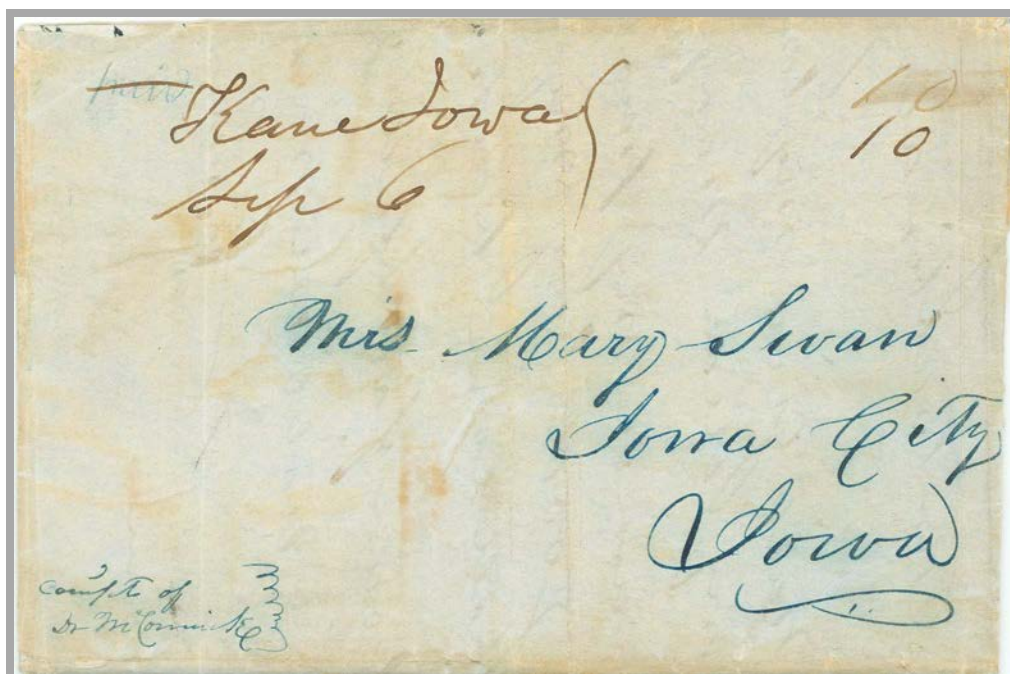 paid
Kane Iowa
Sep 6
10
10
Mrs Mary Swan
Iowa City
Iowa
of
Dr McCormick